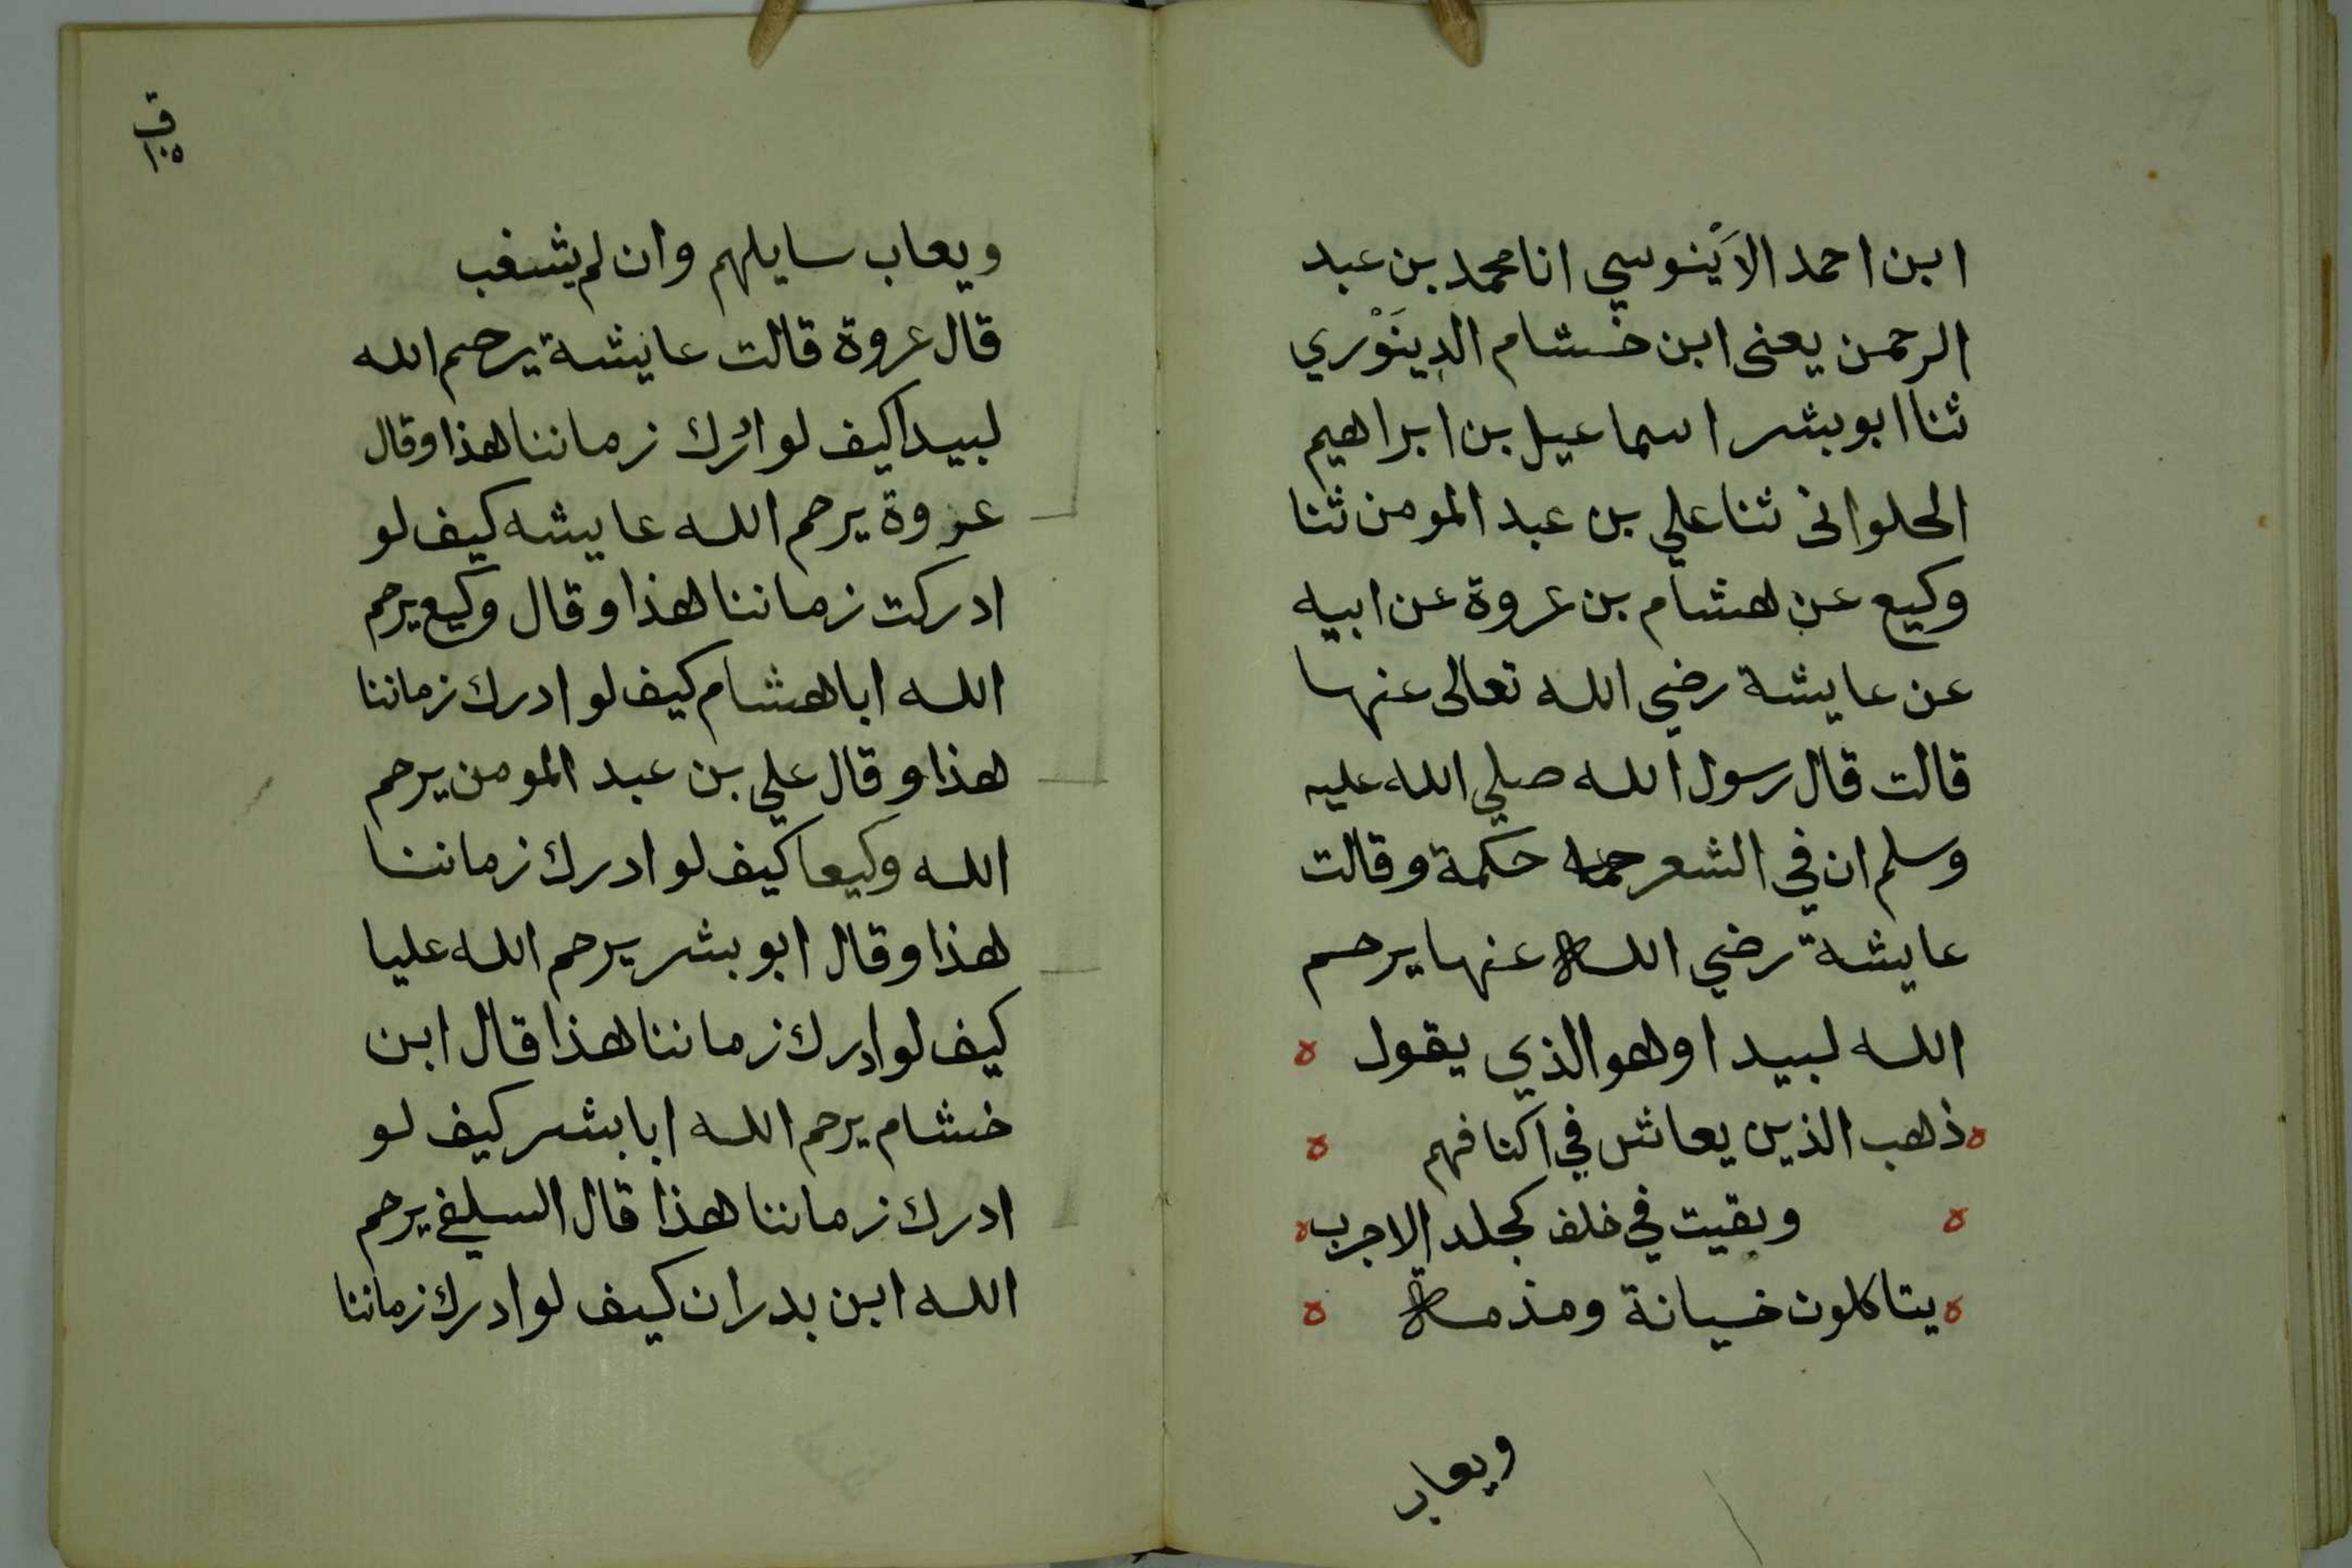 ابن احمد الاَبْنوسي انا محمد بن عبد
الرحمن يعنى ابن خشام الدِينَوْري
ثنا ابو بشر اسماعيل بن ابراهيم
الحلوانى ثنا علي بن عبد المومن ثنا
وكيع عن هشام بن عروة عن ابيه
عن عايشة رضي الله تعالى عنها
قالت قال رسول الله صلي الله عليه
وسلم ان في الشعر حكمة وقالت
عايشة رضي الله عنها يرحم
الله لبيدا وهو الذي يقول ه
ه ذهب الذين يعاش في اكنافهم ه
ه وبقيت في خلف كجلد الاجرب ه
ه يتاكلون خيانة ومذمة ه
ويعاب
ق
١٠٥
ويعاب سايلهم وان لم يشغب
قال عروة قالت عايشة يرحم الله
لبيدا كيف لو ادرك زماننا هذا وقال
عروة يرحم الله عايشه كيف لو
ادركت زماننا هذا وقال وكيع يرحم
الله ابا هشام كيف لو ادرك زماننا
هذا وقال علي بن عبد المومن يرحم
الله وكيعا كيف لو ادرك زماننا
هذا وقال ابو بشر يرحم الله عليا
كيف لو ادرك زماننا هذا قال ابن
خشام يرحم الله ابا بشر كيف لو
ادرك زماننا هذا قال السلفي يرحم
الله ابن بدران كيف لو ادرك زماننا